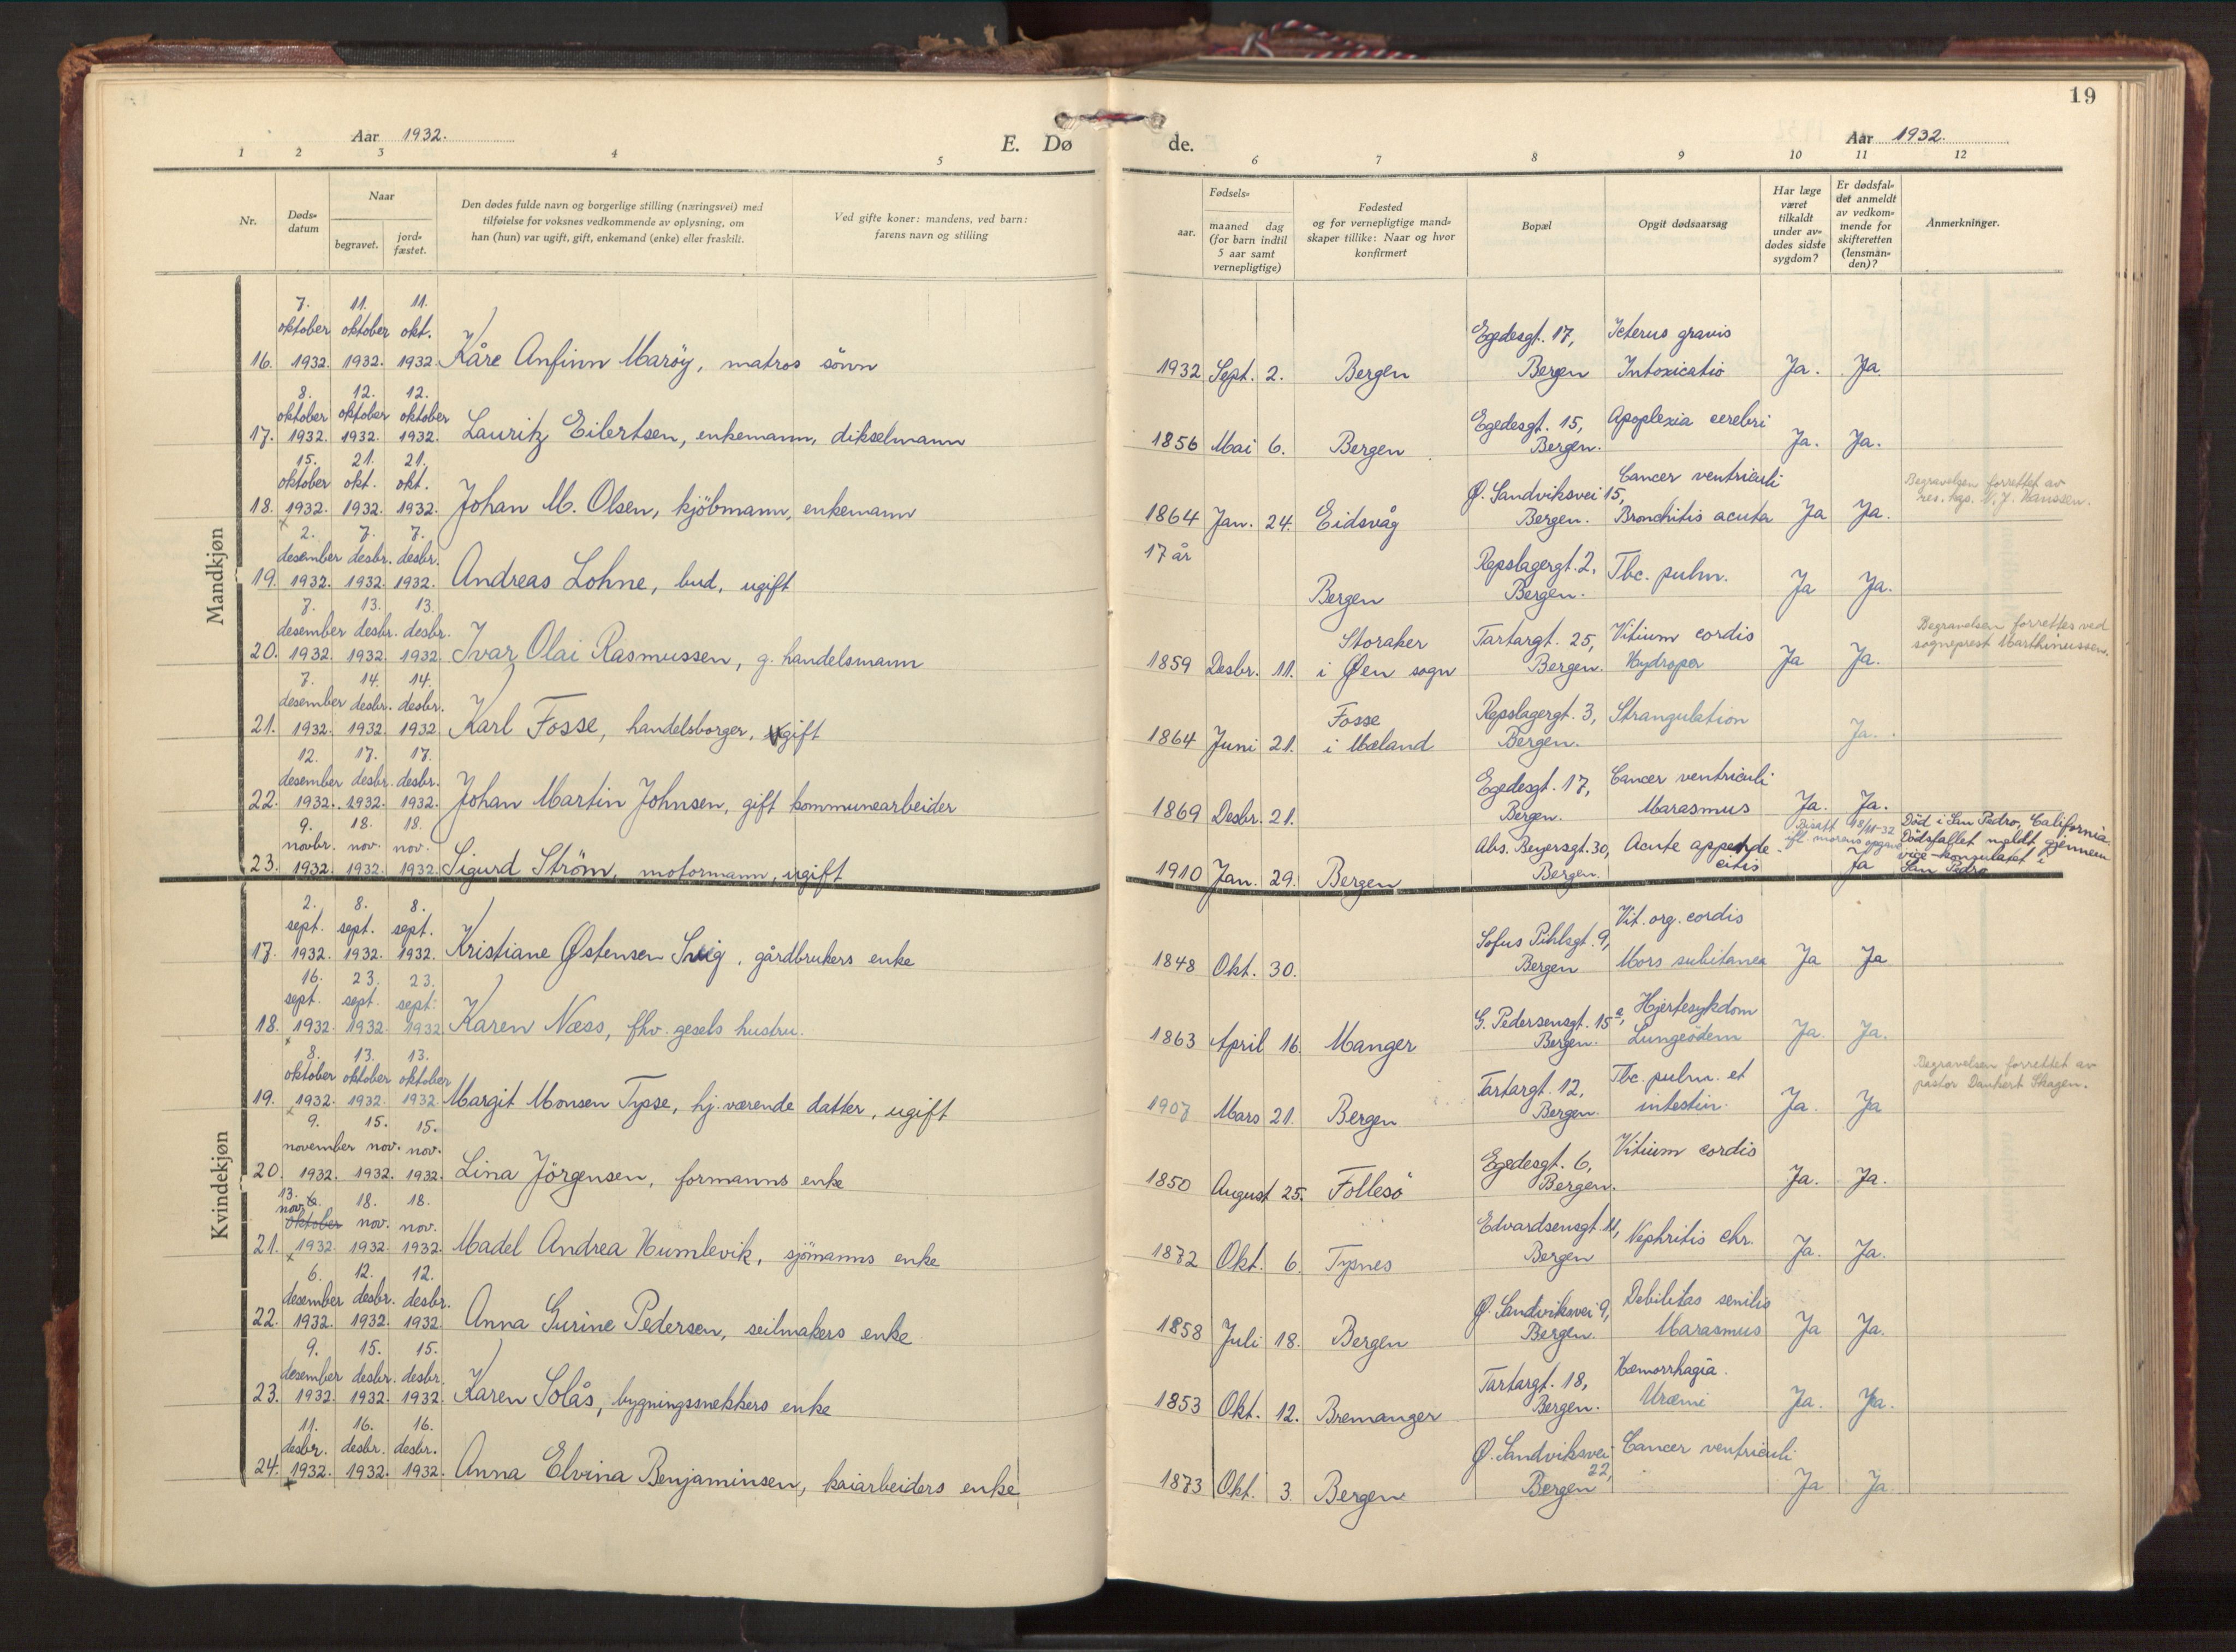 19
Aar 1932.
E. Døde.
Aar 1932.
1 2 3 4 5 6 7 8 9 10 11 12
Nr.
Dødsdatum
Naar
begravet.
jordfæstet.
Den dødes fulde navn og borgerlige stilling (næringsvei) med
tilføielse for voksnes vedkommende av oplysning, om
han (hun) var ugift, gift, enkemand (enke) eller fraskilt.
Ved gifte koner: mandens, ved barn:
farens navn og stilling
Fødsels-
aar.
maaned dag
(for barn indtil
5 aar samt
vernepligtige)
Fødested
og for vernepligtige mand-
skaper tillike: Naar og hvor
konfirmert
Bopæl
Opgit dødsaarsag
Har læge
været
tilkaldt
under av-
dødes sidste
sygdom?
Er dødsfal-
det anmeldt
av vedkom-
mende for
skifteretten
(lensman-
den)?
Anmerkninger.
Mandkjøn
7. 11. 11.
oktober oktober okt. Egedesgt. 17, Icterus gravis
16. 1932. 1932. 1932. Kåre Anfinn Marøy, matros sönn 1932 Sept. 2. Bergen Bergen Intoxicatio Ja. Ja.
8. 12. 12.
oktober oktober oktober Egedesgt. 15, Apoplexia cerebri
17. 1932. 1932. 1932. Lauritz Eilertsen, enkemann, dikselmann 1856 Mai 6. Bergen Bergen. Ja. Ja.
15. 21. 21. Cancer ventriculi Begravelsen forrettet av
oktober okt. okt. Ø. Sandviksvei 15, res. kap. N. J. Hanssen.
18. 1932. 1932. 1932. Johan M. Olsen, kjöbmann, enkemann 1864 Jan. 24. Eidsvåg Bergen. Bronchitis acuta Ja Ja.
2. 7. 7. 17 år
desember desbr. desbr. Repslagergt. 2, Tbc. pulm.
19. 1932. 1932. 1932. Andreas Lohne, bud, ugift Bergen Bergen. Ja Ja.
7. 13. 13. Begravelsen forrettes ved
desember desbr. desbr. Storaker Tartargt. 25, Vitium cordis sogneprest Marthinussen.
20. 1932. 1932. 1932. Ivar Olai Rasmussen, g. handelsmann 1859 Desbr. 11. i Øen sogn Bergen. Hydroper Ja Ja.
7. 14. 14.
desember desbr. desbr. Fosse Repslagergt. 3, Strangulation
21. 1932. 1932 1932 Karl Fosse, handelsborger, ugift 1864 Juni 21. i Mæland Bergen. Ja.
12. 17. 17.
desember desbr. desbr. Egedesgt. 17, Cancer ventriculi
22. 1932. 1932. 1932. Johan Martin Johnsen, gift kommunearbeider 1869 Desbr. 21. Bergen. Marasmus Ja. Ja.
9. 18. 18. Bisatt 18/11-32 Död i San Pedro, California.
novbr. nov. nov. Abs. Beyersgt. 30, Acute appende- ifl. morens opgave Dödsfallet meldt gjennem
23. 1932. 1932. 1932. Sigurd Ström, motormann, ugift 1910 Jan. 29. Bergen Bergen. citis Ja vice-konsulatet i
San Pedro
Kvindekjøn
2. 8. 8.
sept. sept. sept. Sofus Pihlsgt. 9, Vit. org. cordis
17. 1932. 1932. 1932. Kristiane Østensen, gårdbrukers enke 1848 Okt. 30. Bergen Mors subitanea Ja Ja
16. 23. 23.
sept. sept. sept. G. Pedersensgt. 15a, Hjertesykdom
18. 1932. 1932. 1932 Karen Næss, fhv. gesels hustru. 1863 April 16. Manger Bergen. Lungeödem Ja. Ja.
8. 13. 13. Begravelsen forrettet av
oktober oktober oktober Tartargt. 12, Tbc. pulm. et pastor Dankert Skagen.
19. 1932. 1932. 1932. Margit Monsen Tysse, hj. værende datter, ugift 1907 Mars 21. Bergen Bergen. intestin. Ja. Ja
9. 15. 15.
november nov. nov. Egedesgt. 6, Vitium cordis
20. 1932. 1932. 1932. Lina Jörgensen, formanns enke 1850 August 25. Follesö Bergen. Ja. Ja.
13. 6. 18. 18.
nov. oktober nov. nov. Edvardsensgt. 11, Nephritis chr.
21. 1932. 1932. 1932. Madel Andrea Humlevik, sjömanns enke 1872 Okt. 6. Tysnes Bergen Ja. Ja.
6. 12. 12.
desember desbr. desbr. Ø. Sandviksvei 9, Debilitas senilis
22. 1932. 1932. 1932. Anna Gurine Pedersen, seilmakers enke 1858 Juli 18. Bergen Bergen. Marasmus Ja Ja.
9. 15. 15.
desember desbr. desbr. Tartargt. 18, Hæmorrhagia.
23. 1932. 1932. 1932. Karen Solås, bygningssnekkers enke 1853 Okt. 12. Bremanger Bergen. Uræmi Ja. Ja.
11. 16. 16.
desbr. desbr. desbr. Ø. Sandviksvei 22, Cancer ventriculi
24. 1932. 1932. 1932. Anna Elvina Benjaminsen, kaiarbeiders enke 1873 Okt. 3. Bergen Bergen Ja Ja.